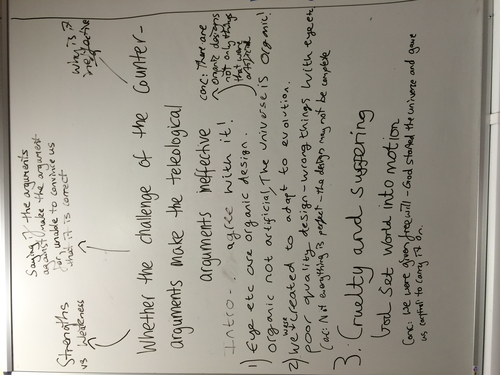 Strengths
vs Weakness
Saying if the arguments
against make the argument
for, unable to convince us
when it is correct
Why is it
ineffective
Whether the challenge of the Counter-
arguments make the teleological
arguments ineffective
Intro - agree with it!
1) Eye etc are organic design.
organic not artificial, The universe is organic!
conc: There are
organic designs
not only things
that were
artificial
2) We were created to adapt to evolution.
poor quality design - wrong things with eye etc
Conc: Not everything is perfect - the design may not be complete
3. Cruelty and Suffering
God Set World into motion
Conc: We were given freewill - God started the universe and gave
us control to carry it on.